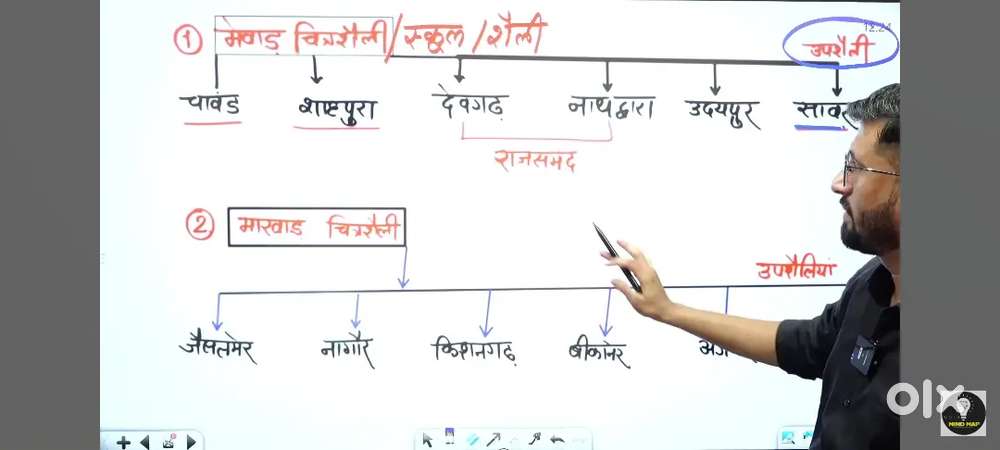 12:24
① मेवाड़ चित्रशैली / स्कूल / शैली
उपशैली
चावंड शाहपुरा देवगढ़ नाथद्वारा उदयपुर सावर
राजसमद
② मारवाड चित्रशैली
उपशैलियां
जैसलमेर नागौर किशनगढ़ बीकानेर
olx
MIND MAP